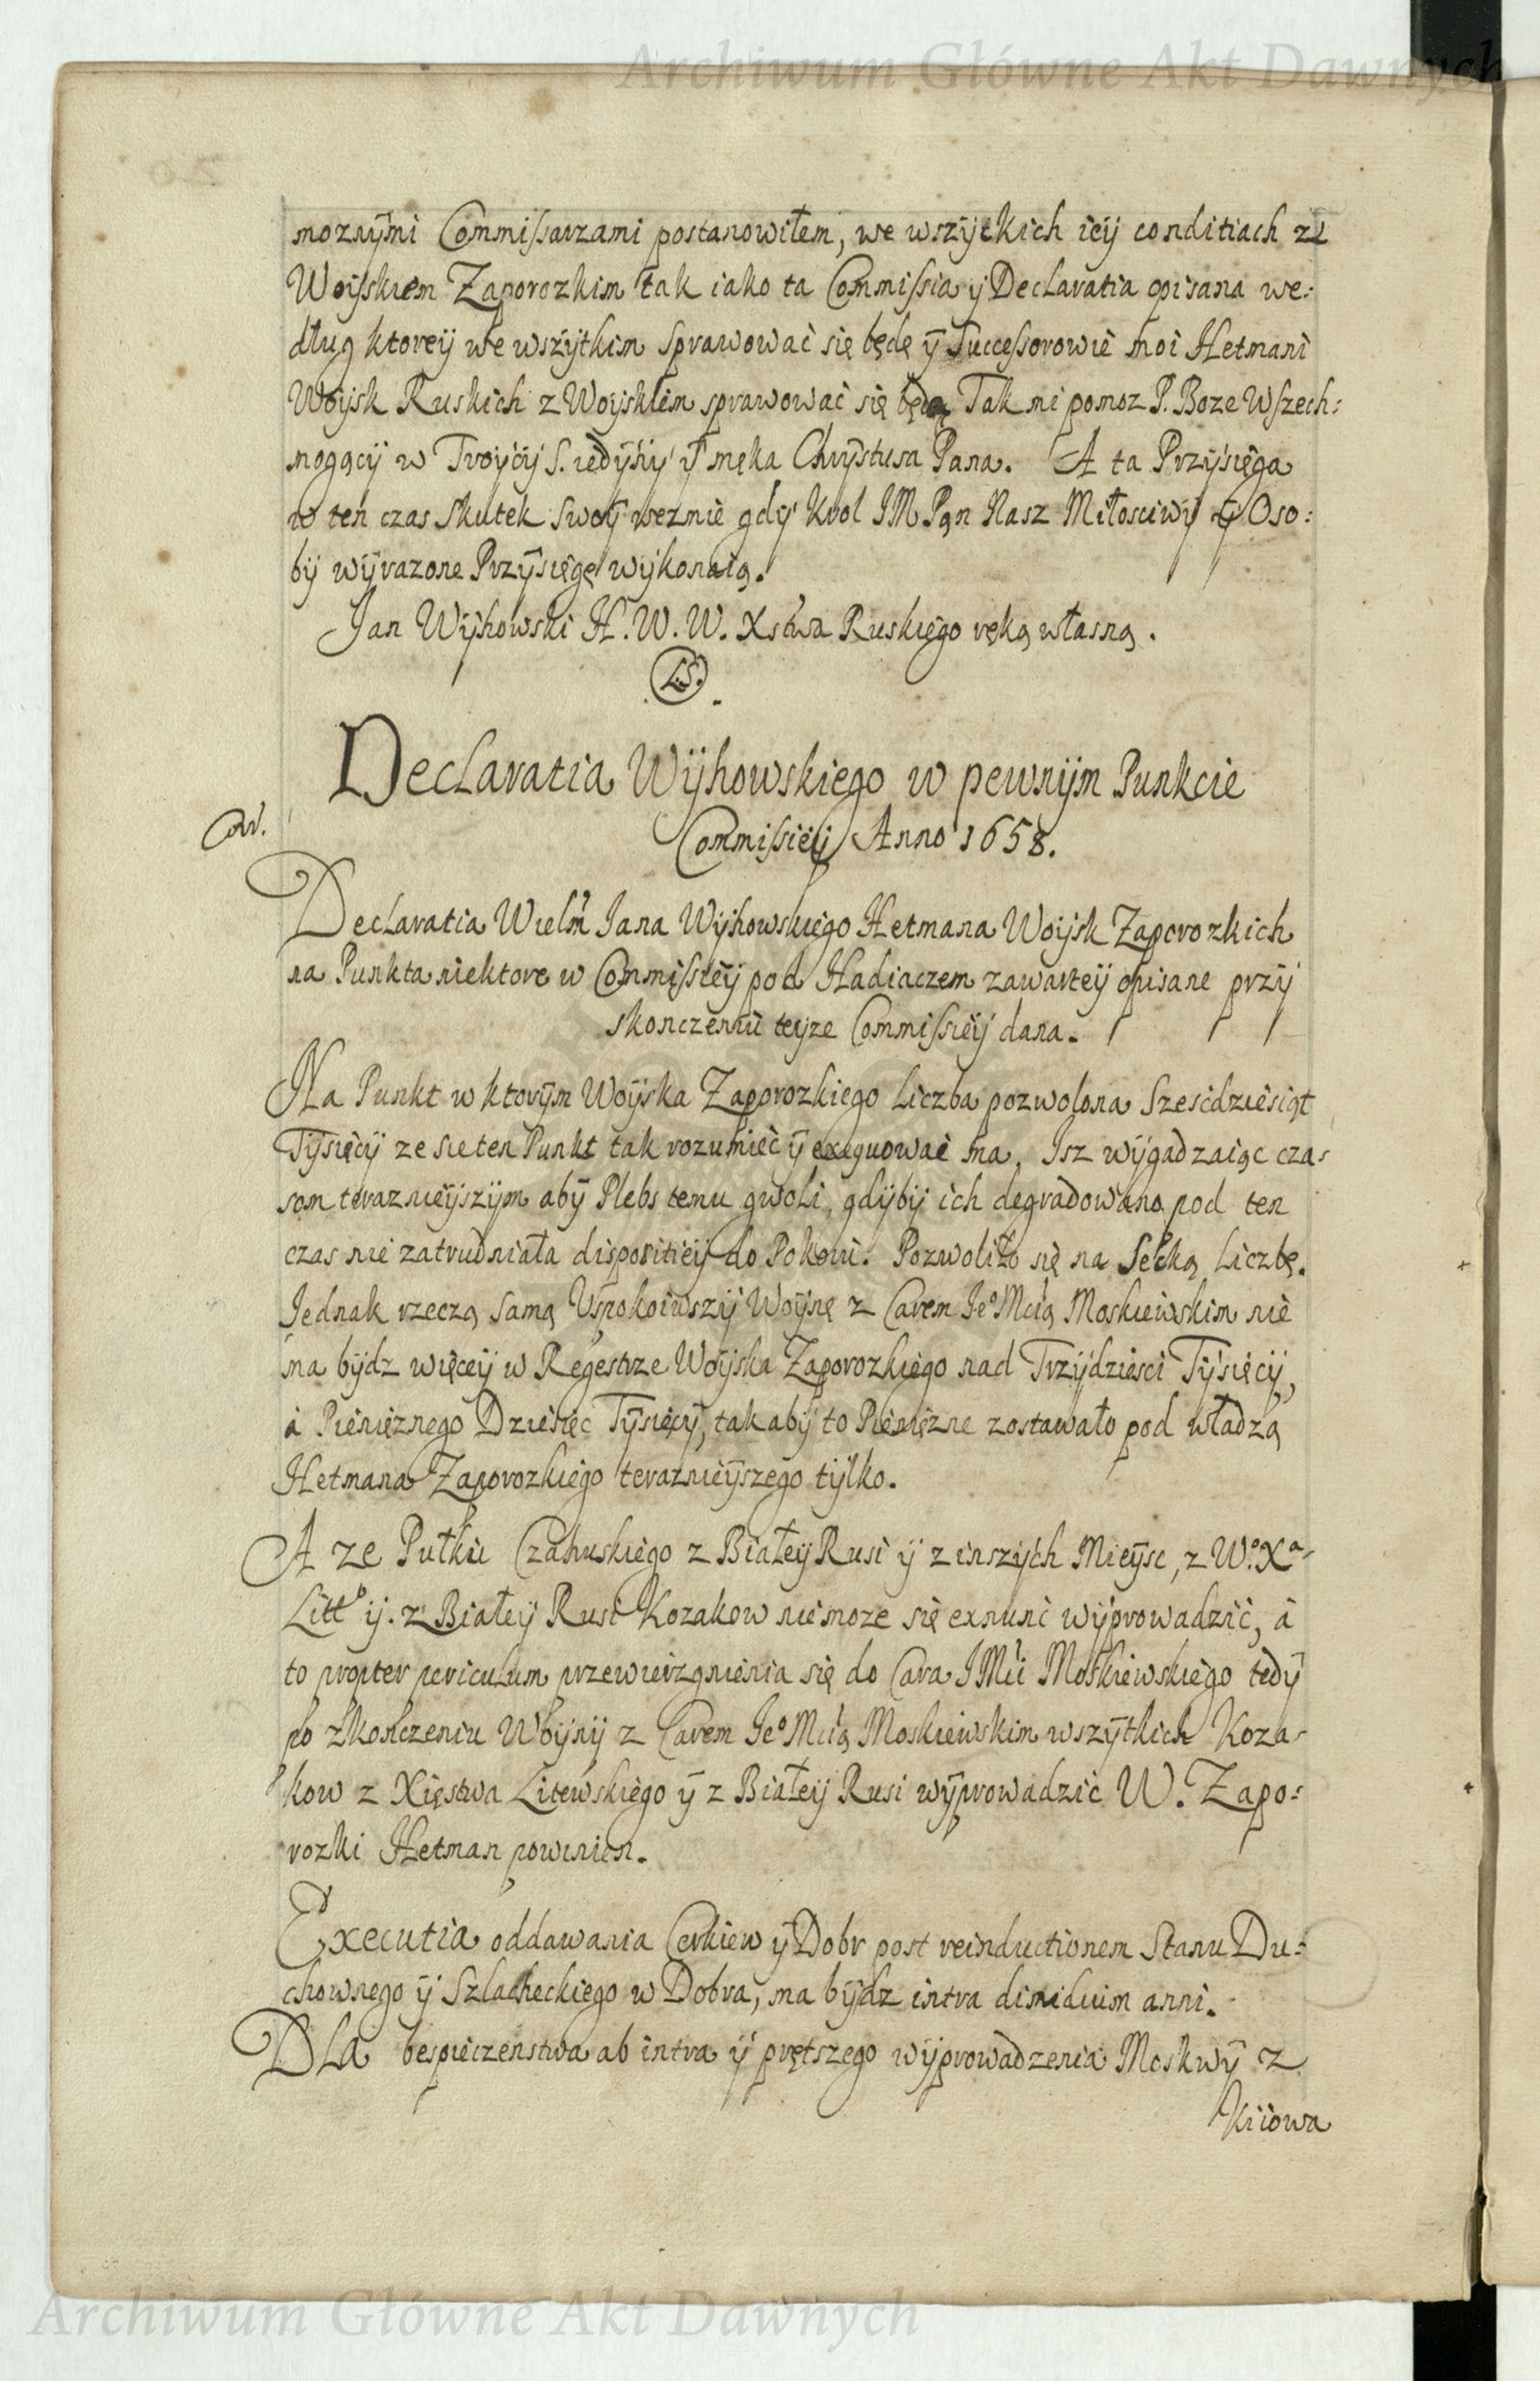 Archiwum Główne Akt Dawnych
moznymi Commissarzami postanowiłem, we wszytkich icij conditiach ze
Woijskiem Zaporozkim tak iako ta Commissia ij Declaratia opisana we:
dług ktoreij we wszytkim sprawować się będę ij Successorowie moi Hetmani
Woijsk Ruskich z Woijskiem sprawować się będą Tak mi pomoz P. Boze Wszech:
mogący w Troijcij S. iedynij ij męka Chrystusa Pana. A ta Przysięga
w ten czas skutek swoij wezmie gdy Krol JM Pan Nasz Miłosciwy ij Oso:
by wyrazone Przysięgę wykonaią.
Jan Wyhowski H. W. W. Xstwa Ruskiego ręką własną.
L.S.
Declaratia Wyhowskiego w pewnym Punkcie
Commissieij Anno 1658.
Declaratia Wielm Jana Wyhowskiego Hetmana Woijsk Zaporozkich
na Punkta niektore w Commissieij pod Hadiaczem zawarteij opisane przy
skonczeniu teijze Commissieij dana.
Na Punkt w ktorym Woijska Zaporozkiego liczba pozwolona Szescdziesiąt
Tysięcy ze sie ten Punkt tak rozumieć ij exequować ma. Isz wygadzaiąc cza-
som teraznieijszym aby Plebs temu gwoli, gdyby ich degradowano pod ten
czas nie zatrudniała dispositieij do Pokoiu. Pozwoliło się na Liczbę.
Jednak rzeczą samą Uspokoiwszy Woijnę z Carem Je° Mcią Moskiewskim nie
ma bydz więceij w Regestrze Woijska Zaporozkiego nad Trzydziesci Tysięcy,
à Pienięznego Dziesięc Tysięcy, tak aby to Pienięzne zostawało pod władzą
Hetmana Zaporozkiego teraznieijszego tylko.
A ze Pułku Czahuskiego z Białeij Rusi ij z inszych Mieijsc, z W.° Xa-
Litt° ij z Białeij Rusi Kozakow nie moze się exnunc wyprowadzić, à
to propter periculum przewierzgnienia się do Cara JMci Moskiewskiego tedy
po zkonczeniu Woijny z Carem Je° Mcią Moskiewskim wszytkich Koza-
kow z Xięstwa Litewskiego ij z Białeij Rusi wyprowadzic W. Zapo:
rozki Hetman powinien.
Executia oddawania Cerkiew ij Dobr post reinductionem Stanu Du:
chownego ij Szlacheckiego w Dobra, ma bydz intra dimidium anni.
Dla bespieczenstwa ab intra ij prętszego wyprowadzenia Moskwy z
Kiiowa
Archiwum Główne Akt Dawnych